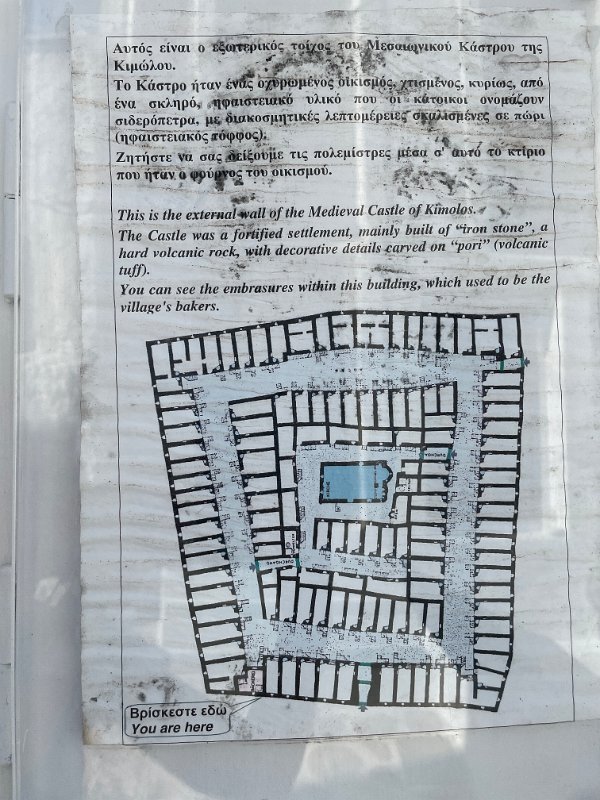 Αυτός είναι ο εξωτερικός τοίχος του Μεσαιωνικού Κάστρου της
Κιμώλου.
Το Κάστρο ήταν ένας οχυρωμένος οικισμός, χτισμένος, κυρίως, από
ένα σκληρό, ηφαιστειακό υλικό που οι κάτοικοι ονομάζουν
σιδερόπετρα, με διακοσμητικές λεπτομέρειες σκαλισμένες σε πώρι
(ηφαιστειακός τόφφος).
Ζητήστε να σας δείξουμε τις πολεμίστρες μέσα σ' αυτό το κτίριο
που ήταν ο φούρνος του οικισμού.
This is the external wall of the Medieval Castle of Kimolos.
The Castle was a fortified settlement, mainly built of “iron stone”, a
hard volcanic rock, with decorative details carved on “pori” (volcanic
tuff).
You can see the embrasures within this building, which used to be the
village's bakers.
Βρίσκεστε εδώ
You are here